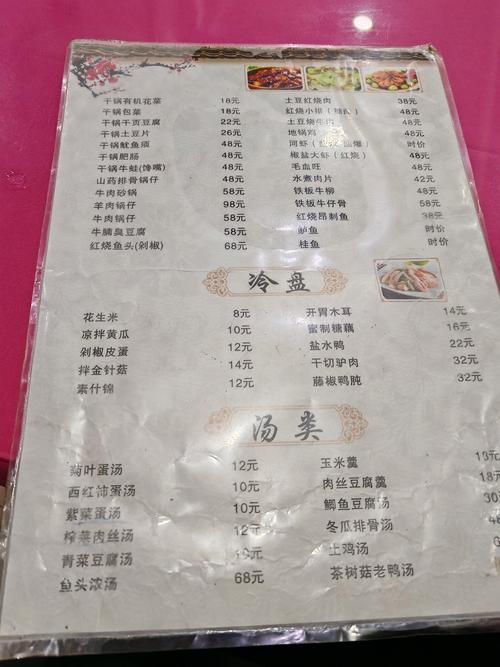 干锅有机花菜 18元
干锅包菜 18元
干锅千页豆腐 22元
干锅土豆片 26元
干锅鱿鱼须 48元
干锅肥肠 48元
干锅牛蛙(馋嘴) 48元
山药排骨锅仔 48元
牛肉砂锅 58元
羊肉锅仔 98元
牛肉锅仔 58元
牛腩臭豆腐 58元
红烧鱼头(剁椒) 68元
土豆红烧肉 38元
红烧小排 48元
土豆烧牛肉 48元
地锅鸡 48元
河虾 时价
椒盐大虾(红烧) 48元
毛血旺 48元
水煮肉片 42元
铁板牛柳 48元
铁板牛仔骨 58元
红烧昂刺鱼 38元
鲈鱼 时价
桂鱼 时价
冷盘
花生米 8元
凉拌黄瓜 10元
剁椒皮蛋 12元
拌金针菇 14元
素什锦 12元
开胃木耳 14元
蜜制糖藕 16元
盐水鸭 22元
干切驴肉 32元
藤椒鸭肫 32元
汤类
菊叶蛋汤 12元
西红柿蛋汤 10元
紫菜蛋汤 10元
榨菜肉丝汤 12元
青菜豆腐汤
鱼头浓汤 68元
玉米羹
肉丝豆腐羹 18元
鲫鱼豆腐汤
冬瓜排骨汤
土鸡汤
茶树菇老鸭汤